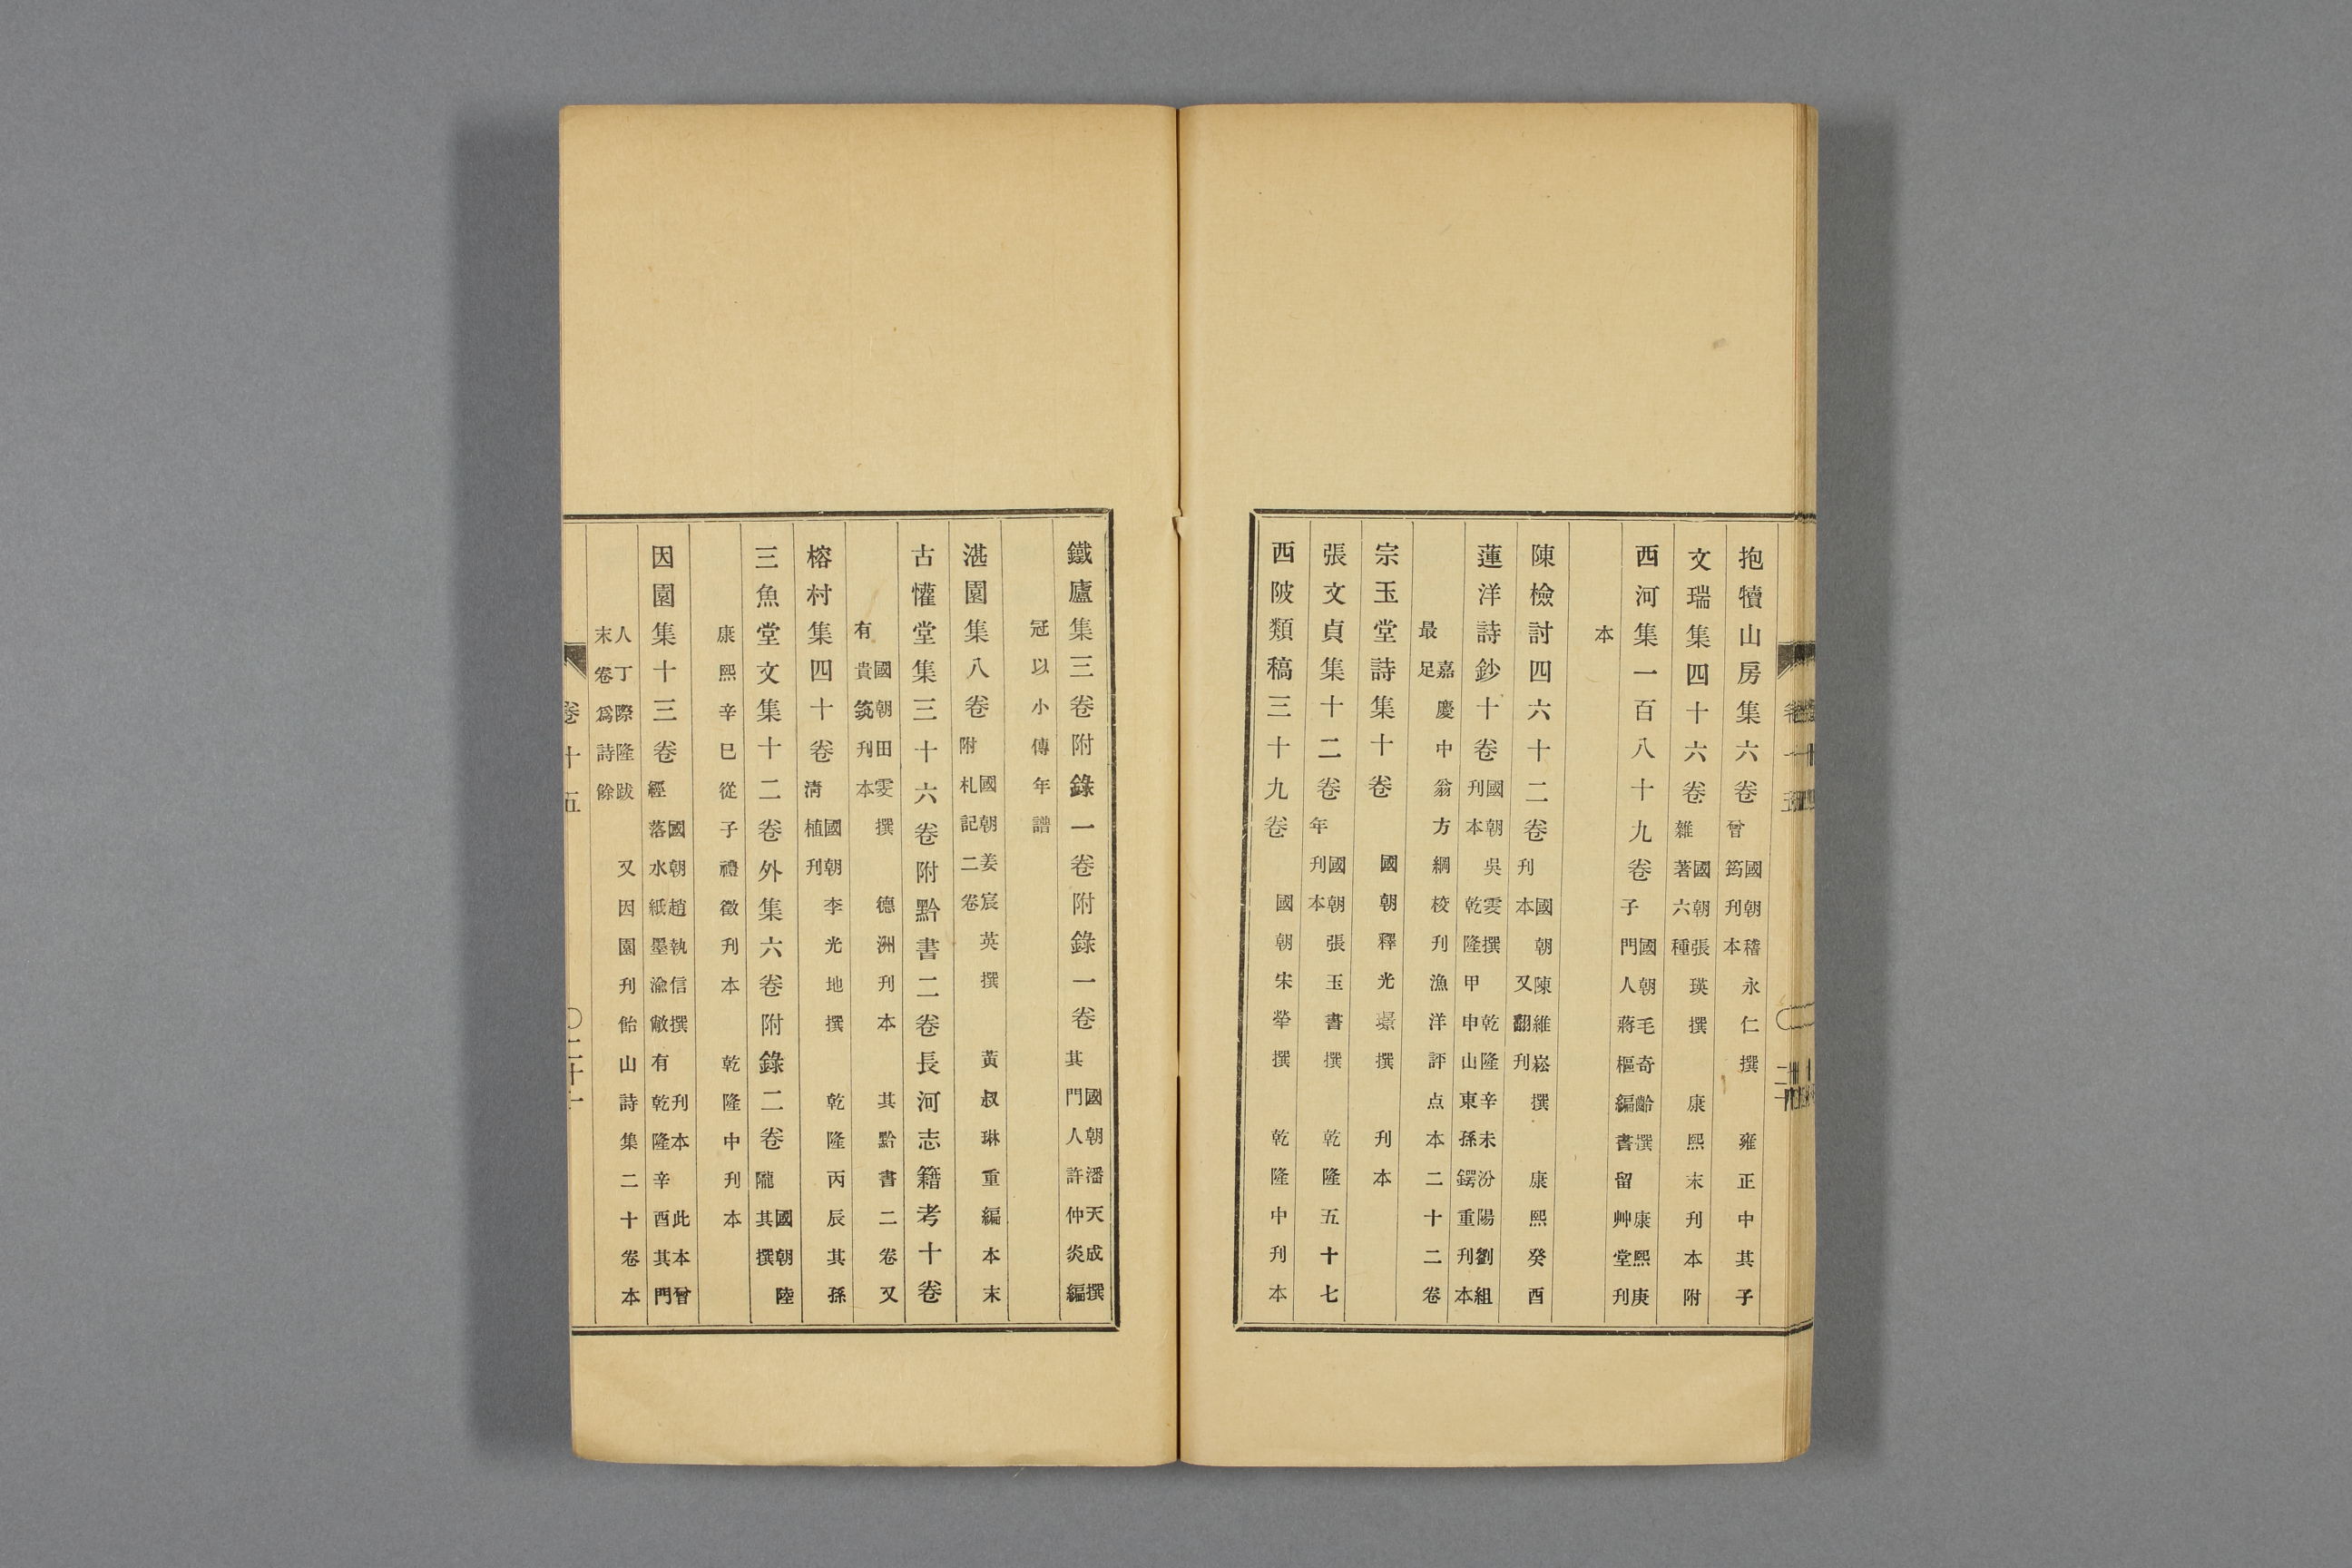 抱犢山房集六卷 國朝嵇永仁撰 雍正中其子
曾筠刊本
文瑞集四十六卷 國朝張瑛撰 康熙末刊本附
雜著六種
西河集一百八十九卷 國朝毛奇齡撰 康熙庚
子門人蔣樞編書留艸堂刊
本
陳檢討四六十二卷 國朝陳維崧撰 康熙癸酉
刊本 又翻刊
蓮洋詩鈔十卷 國朝吳雯撰 乾隆辛未汾陽劉組
刊本 乾隆甲申山東孫鍔重刊本
嘉慶中翁方綱校刊漁洋評点本二十二卷
最足
宗玉堂詩集十卷 國朝釋光撰 刊本
張文貞集十二卷 國朝張玉書撰 乾隆五十七
年刊本
西陂類稿三十九卷 國朝宋犖撰 乾隆中刊本
鐵廬集三卷附錄一卷附錄一卷 國朝潘天成撰
其門人許仲炎編
冠以小傳年譜
湛園集八卷 國朝姜宸英撰 黃叔琳重編本末
附札記二卷
古懽堂集三十六卷附黔書二卷長河志籍考十卷
國朝田雯撰 德洲刊本 其黔書二卷又
有貴筑刊本
榕村集四十卷 國朝李光地撰 乾隆丙辰其孫
清植刊
三魚堂文集十二卷外集六卷附錄二卷 國朝陸
隴其撰
康熙辛巳從子禮徵刊本 乾隆中刊本
因園集十三卷 國朝趙執信撰 刊本 此本曾
經落水紙墨渝敝有乾隆辛酉其門
人丁際隆跋 又因園刊飴山詩集二十卷本
末卷爲詩餘
卷十五